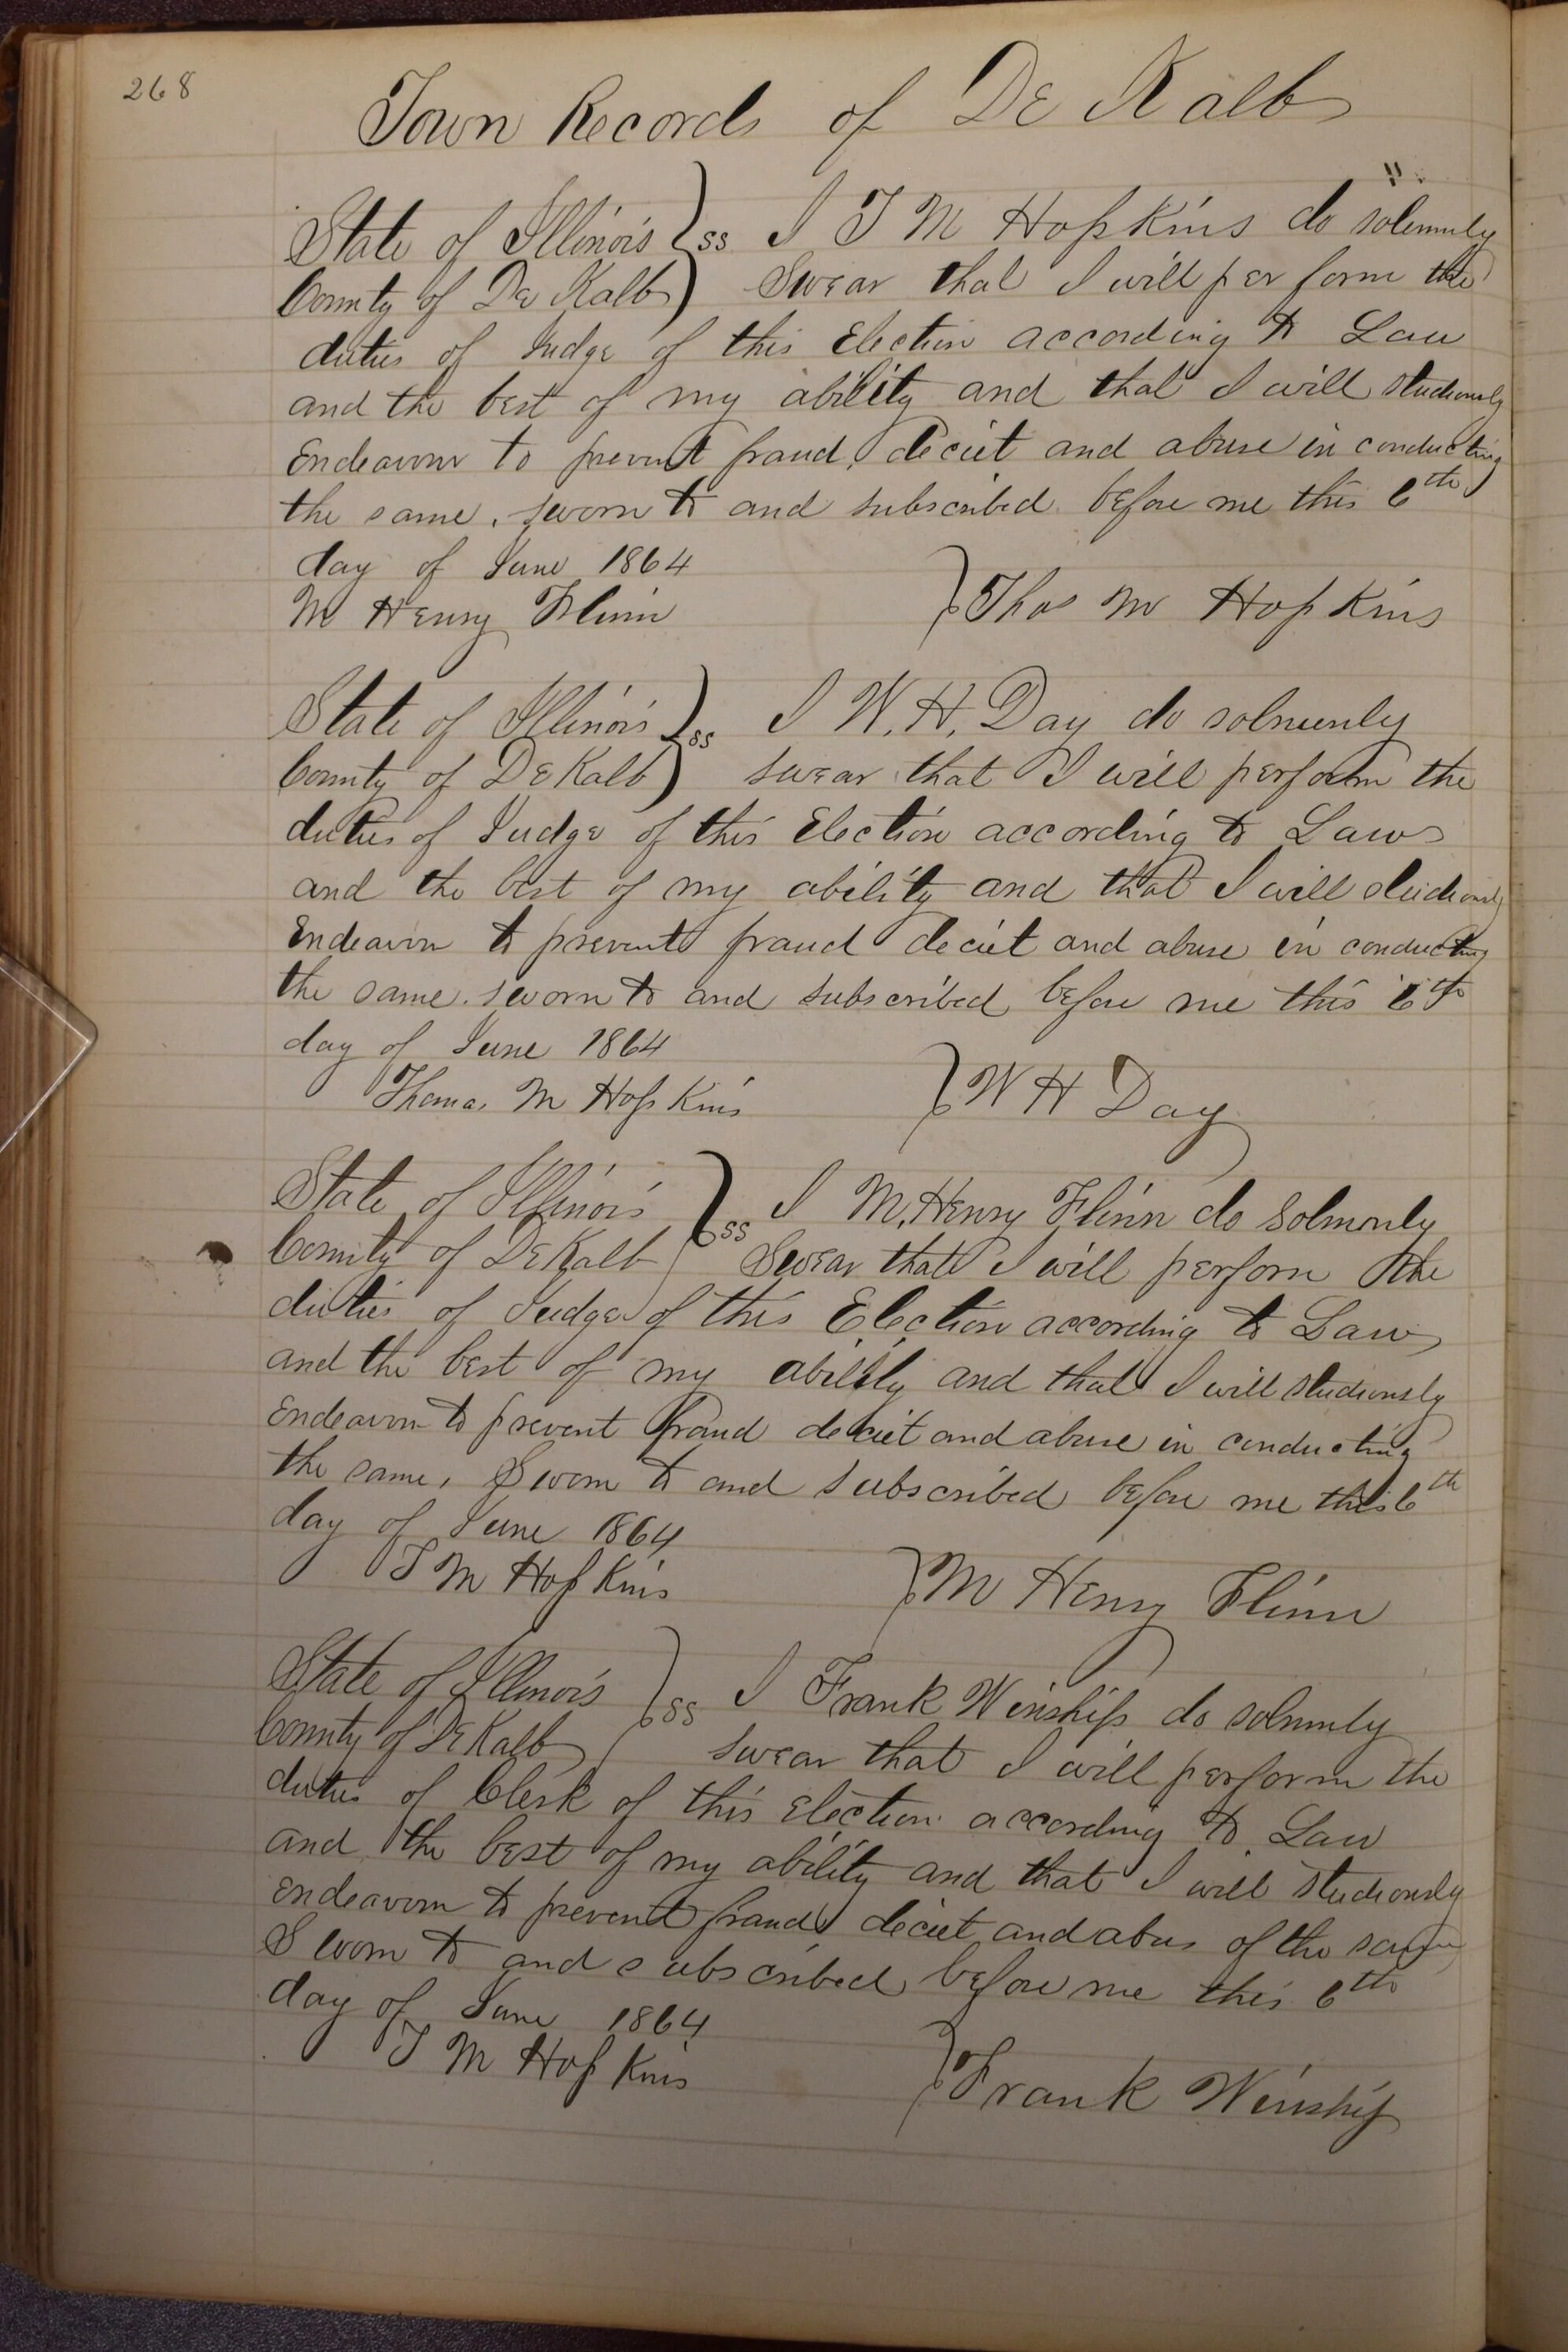 268
Town Records of De Kalb
State of Illinois } ss I T M Hopkins do solemnly
County of De Kalb } Swear that I will per form the
duties of Judge of this Election according to Law
and the best of my ability and that I will studiously
Endeavour to prevent fraud, deciet and abuse in conducting
the same. sworn to and subscribed before me this 6th
day of June 1864
M Henry Flinn } Thos M Hopkins
State of Illinois } ss I W. H. Day do solmenly
County of DeKalb } swear that I will perform the
duties of Judge of this Election according to Law
and the best of my ability and that I will studiously
Endeavor to prevent fraud deciet and abuse in conducting
the same. sworn to and subscribed before me this 6th
day of June 1864
Thomas M Hopkins } W H Day
State of Illinois } ss I M. Henry Flinn do Solmonly
County of DeKalb } Swear that I will perform the
duties of Judge of this Election according to Law
and the best of my ability and that I will studiously
Endeavor to prevent fraud deciet and abuse in conducting
the same, Sworn to and Subscribed before me this 6th
day of June 1864
T M Hopkins } M Henry Flinn
State of Illinois } ss I Frank Winship do solmnly
County of DeKalb } swear that I will perform the
duties of Clerk of this Election according to Law
and the best of my ability and that I will studiously
endeavor to prevent fraud deciet and abus of the same
Sworn to and subscribed before me this 6th
day of June 1864
T M Hopkins } Frank Winship